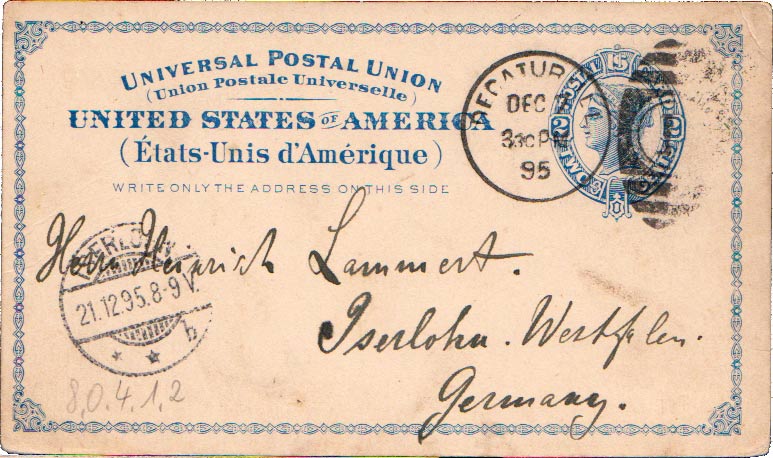 UNIVERSAL POSTAL UNION
(Union Postale Universelle)
UNITED STATES OF AMERICA
(États-Unis d'Amérique)
WRITE ONLY THE ADDRESS ON THIS SIDE
DECATUR
DEC
330 PM
95
POSTAL
TWO
2 2
Herrn Heinrich Lammert.
Iserlohn. Westfalen.
Germany.
ISERLOHN
21.12.95.8-9V.
b
* *
8,0.4.1,2